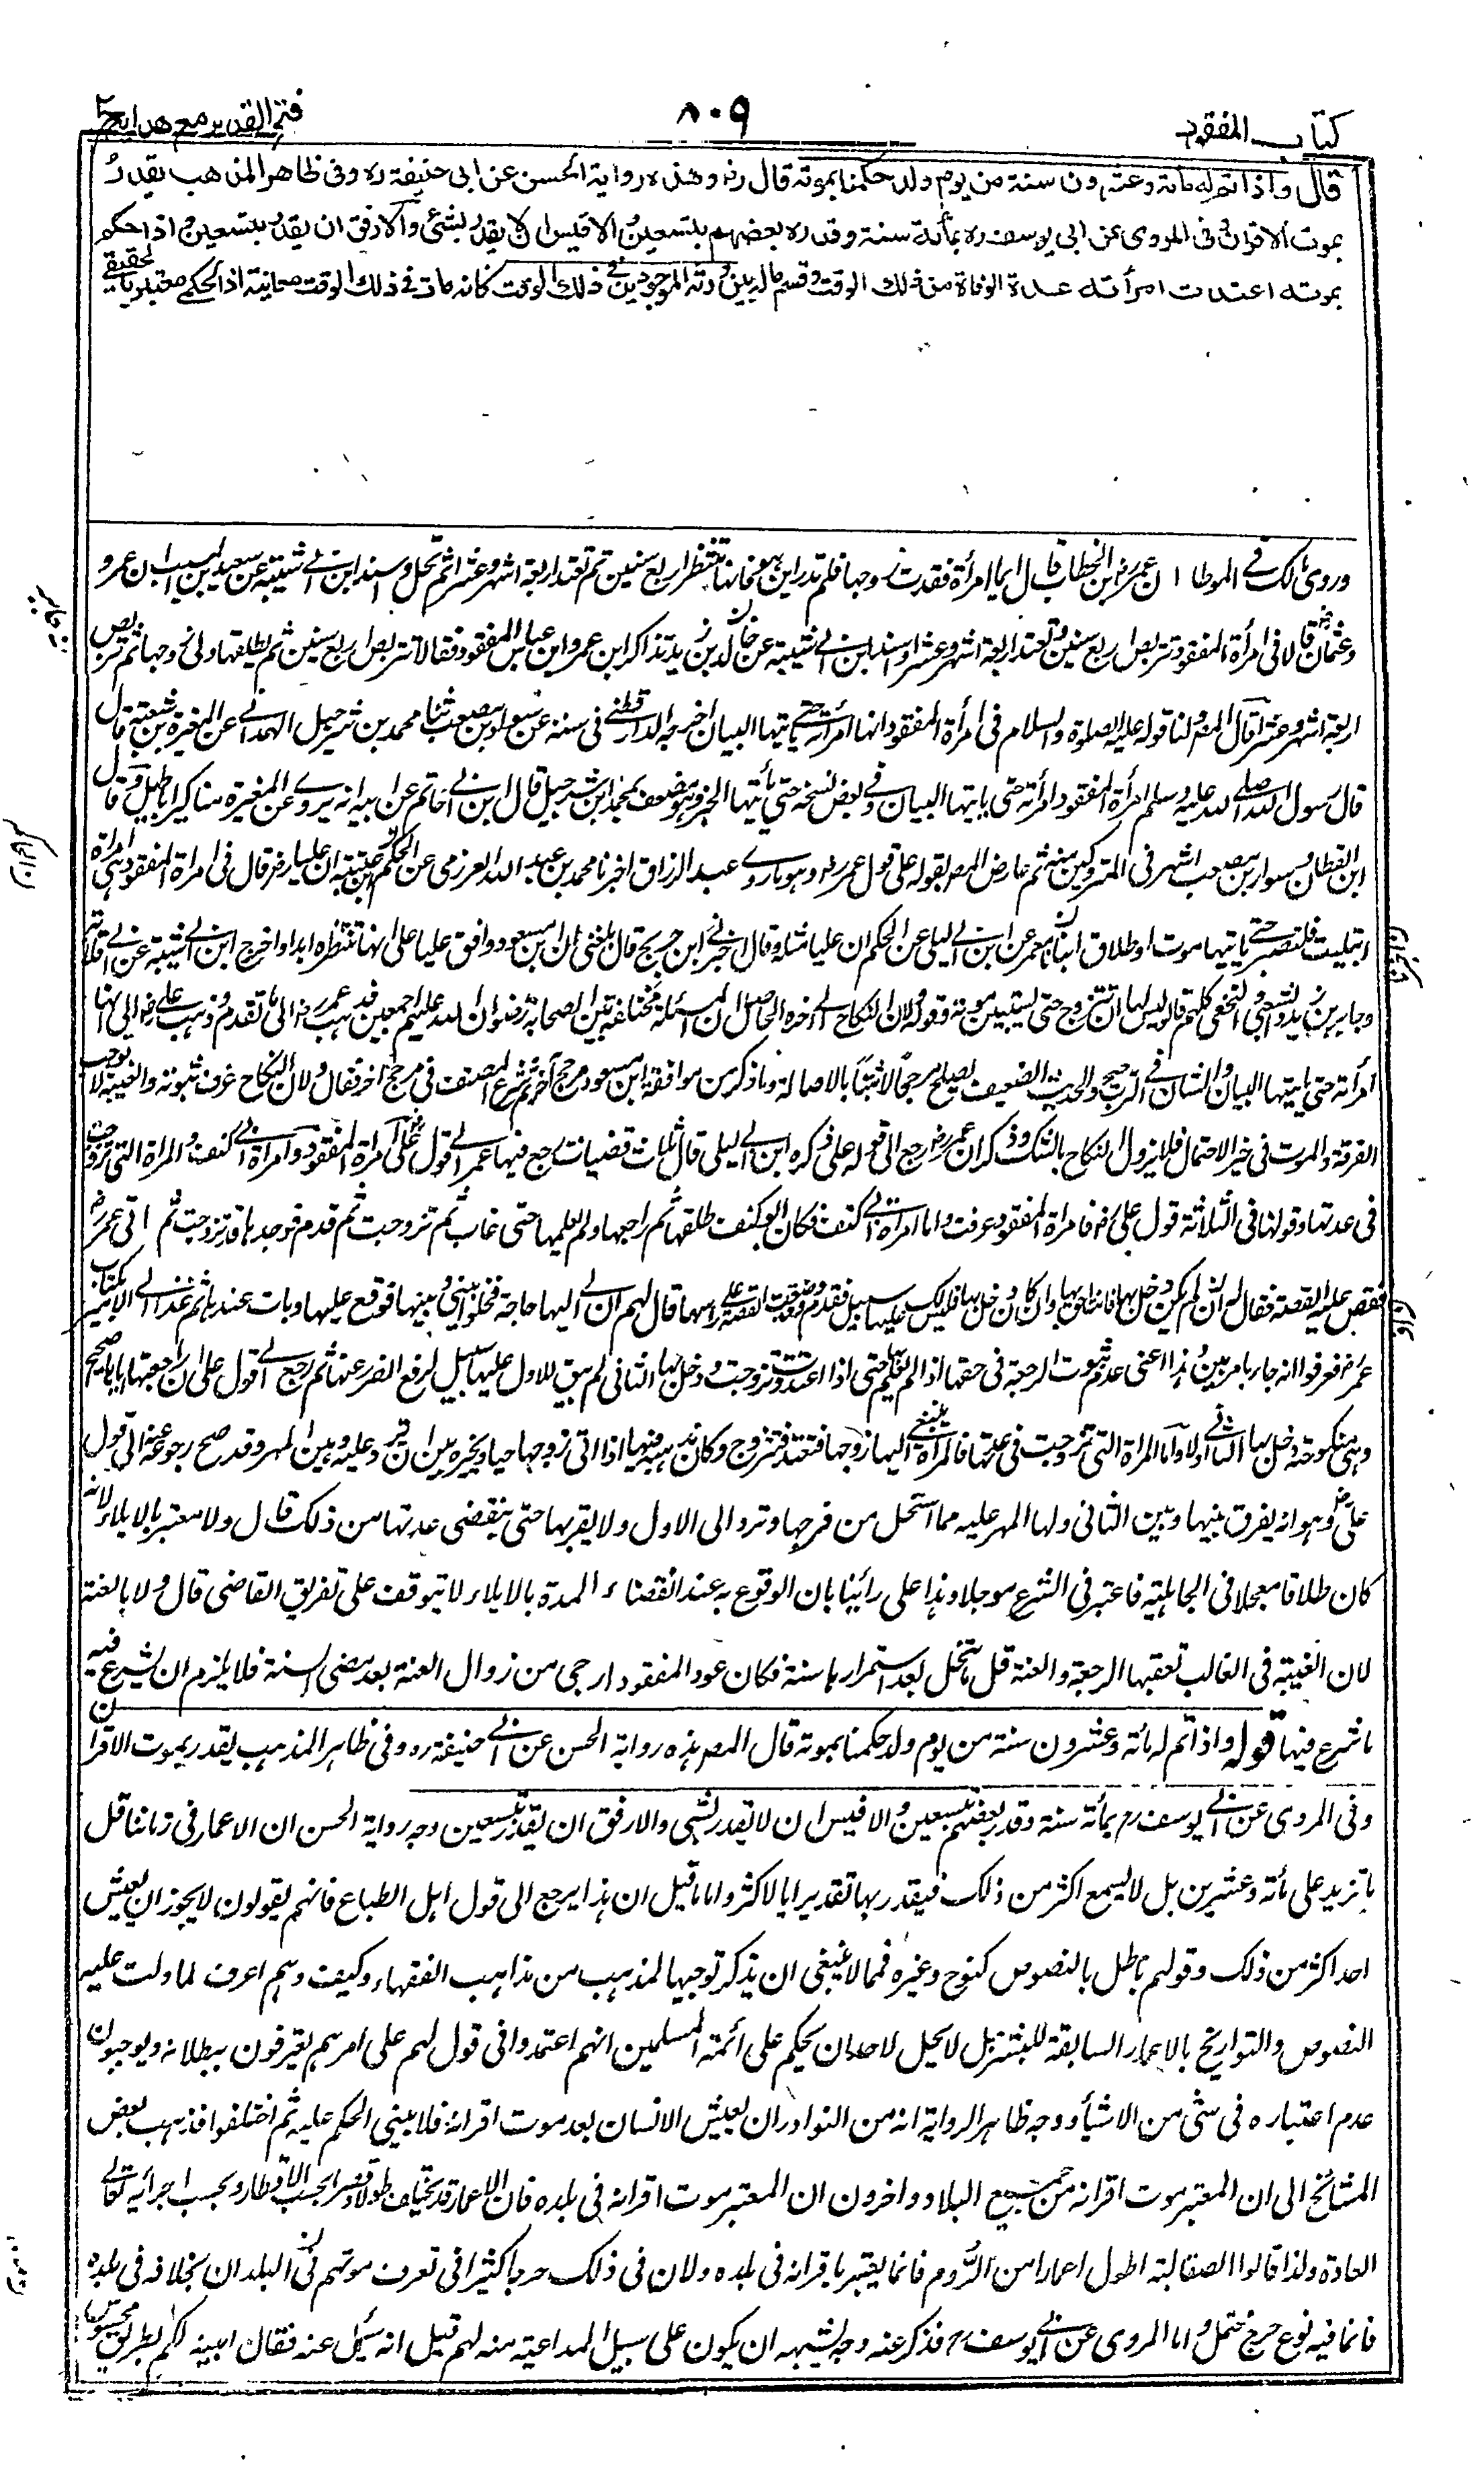 كتاب المفقود
٨٠٩
فتح القدير مع هدايه ج ٢
قال واذا تم له مائة وعشرون سنة من يوم ولد حكمنا بموته قال رض وهذه رواية الحسن عن ابي حنيفة ره وفي ظاهر المذهب يقدر
بموت الاقران وفي المروي عن ابي يوسف ره بمأية سنة وقدره بعضهم بتسعين والاقيس ان لا يقدر بشئ والارفق ان يقدر بتسعين واذا حكم
بموته اعتدت امرأته عدة الوفاة من ذلك الوقت وقسم ماله بين ورثته الموجودين في ذلك الوقت كانه مات في ذلك الوقت معاينة اذ الحكمي معتبر بالحقيقي
وروى مالك في الموطا ان عمر رض ابن الخطاب قال ايما امرأة فقدت زوجها فلم تدر اين هو فانها تنتظر اربع سنين ثم تعتد اربعة اشهر وعشرا ثم تحل واسند ابن ابي شيبة عن سعيد بن المسيب ان عمر و
وعثمان رض قالا في امرأة المفقود تربص اربع سنين وتعتد اربعة اشهر وعشرا واسند ابن ابي شيبة عن جابر بن زيد تذاكر ابن عمر وابن عباس المفقود فقالا تتربص اربع سنين ثم يطلقها ولي زوجها ثم تربص
اربعة اشهر وعشرا قال المص ولنا قوله عليه الصلوة والسلام في امرأة المفقود انها امرأته حتى ياتيها البيان اخرجه الدارقطني في سننه عن سوار بن مصعب ثنا محمد بن شرحبيل الهمداني عن المغيرة بن شعبة قال
قال رسول الله صلى الله عليه وسلم امرأة المفقود امرأته حتى ياتيها البيان وفي بعض نسخه حتى يأتيها الخبر وهو مضعف بمحمد ابن شرحبيل قال ابن ابي حاتم عن ابيه انه يروي عن المغيرة مناكير اباطيل وقال
ابن القطان وسوار بن مصعب اشهر في المتروكين منه ثم عارض المص بقوله علي قول عمر رض وهو ما روى عبد الرزاق اخبرنا محمد بن عبيد الله العرزمي عن الحكم بن عتيبة ان عليا رض قال في امرأة المفقود هي امرأة
ابتليت فلتصبر حتى ياتيها موت او طلاق انبأنا معمر عن ابن ابي ليلى عن الحكم ان عليا مثله وقال اخبرني ابن جريج قال بلغني ان ابن مسعود وافق عليا على انها تنتظره ابدا واخرج ابن ابي شيبة عن ابي قلابة
وجابر بن زيد والشعبي والنخعي كلهم قالوا ليس لها ان تتزوج حتى يستبين موته وقوله ولان النكاح الى اخره الحاصل ان المسئلة مختلفة بين الصحابة رضوان الله عليهم اجمعين فذهب عمر رض الى ما تقدم وذهب علي رض الى انها
امرأته حتى ياتيها البيان والشان في الترجيح والحديث الضعيف يصلح مرجحا لا مثبتا بالاصالة وما ذكر من موافقة ابن مسعود مرجح آخر ثم شرع المصنف في مرجح آخر فقال ولان النكاح عرف ثبوته والغيبة لا توجب
الفرقة والموت في حيز الاحتمال فلا يزول النكاح بالشك وذكر ان عمر رض رجع الى قول علي ذكره ابن ابي ليلى قال ثلاث قضيات رجع فيها عمر الى قول علي رض امرأة المفقود وامرأة ابي كنف والمرأة التي تزوجت
في عدتها وقولنا في الثلاثة قول علي رض فامرأة المفقود عرفت واما امرأة ابي كنف فكان ابو كنف طلقها ثم راجعها ولم يعلمها حتى غاب ثم تزوجت ثم قدم فوجدها قد تزوجت ثم اتى عمر رض
فقص عليه القصة فقال له ان لم يكن دخل بها فانت احق بها وان كان دخل بها فليس لك عليها سبيل فقدم وقد وضعت القصة على راسها قال لهم ان لي اليها حاجة فخلوا بيني وبينها فوقع عليها وبات عندها ثم غدا الى الامير بكتاب
عمر رض فعرفوا انه جاء بامر بين وهذا اعني عدم ثبوت الرجعة في حقها اذا لم يعلمها حتى اذا اعتدت وتزوجت ودخل بها الثاني لم يبق للاول عليها سبيل لرفع الضرر عنها ثم رجع الى قول علي ان مراجعتها اياها صحيح
وهي منكوحته دخل بها الثاني اولا واما المرأة التي تزوجت في عدتها فالمرأة ينعى اليها زوجها فتعتد فتتزوج وكان مذهبه فيها اذا اتى زوجها حيا ويخيره بين ان ترد عليه وبين المهر وقد صح رجوعه عنه الى قول
علي رض وهو انه يفرق بينها وبين الثاني ولها المهر عليه مما استحل من فرجها وترد الى الاول ولا يقربها حتى ينقضي عدتها من ذلك قال ولا معتبر بالايلاء لانه
كان طلاقا معجلا في الجاهلية فاعتبر في الشرع موجلا وهذا على رأينا بان الوقوع به عند انقضاء المدة بالايلاء لا تيوقف على تفريق القاضي قال ولا بالعنة
لان الغيبة في الغالب تعقبها الرجعة والعنة قل ما تنحل بعد استمرارها سنة فكان عود المفقود ارجى من زوال العنة بعد مضي السنة فلا يلزم ان يشرع فيه
ما شرع فيها قوله واذا تم له مائة وعشرون سنة من يوم ولد حكمنا بموته قال المص هذه رواية الحسن عن ابي حنيفة ره وفي ظاهر المذهب يقدر بموت الاقران
وفي المروى عن ابي يوسف رح بمأته سنة وقدر بعضهم بتسعين والاقيس ان لا تقدر بشئ والارفق ان يقدر بتسعين وجه رواية الحسن ان الاعمار في زماننا قل
ما تزيد على مأته وعشرين بل لا يسمع اكثر من ذلك فيقدر بها تقديرا بالاكثر واما ما قيل ان هذا يرجع الى قول اهل الطباع فانهم يقولون لا يجوز ان يعيش
احد اكثر من ذلك وقولهم باطل بالنصوص كنوح وغيره فمما لا ينبغي ان يذكر توجيها لمذهب من مذاهب الفقهاء وكيف وهم اعرف لما دلت عليه
النصوص والتواريخ بالاعمار السابقة للبشر بل لا يحل لاحد ان يحكم على ائمة المسلمين انهم اعتمدوا في قول لهم على امر هم يعترفون ببطلانه ويوجبون
عدم اعتباره في شئ من الاشياء ووجه ظاهر الرواية انه من النوادر ان يعيش الانسان بعد موت اقرانه فلا يبني الحكم عليه ثم اختلفوا فذهب بعض
المشائخ الى ان المعتبر موت اقرانه من جميع البلاد واخرون ان المعتبر موت اقرانه في بلده فان الاعمار قد تختلف طولا وقصرا بحسب الاقطار وبحسب اجرائه تعالى
العادة ولذا قالوا الصقالبة اطول اعمارا من الروم فانما يعتبر باقرانه في بلده ولان في ذلك حرجا كثيرا في تعرف موتهم في البلدان بخلافه في بلده
فانما فيه نوع حرج محتمل واما المروى عن ابي يوسف رح فذكر عنه وجه يشبهه ان يكون على سبيل المداعبة منه لهم قيل انه سئل عنه فقال ابينه لكم بطريق محسوس